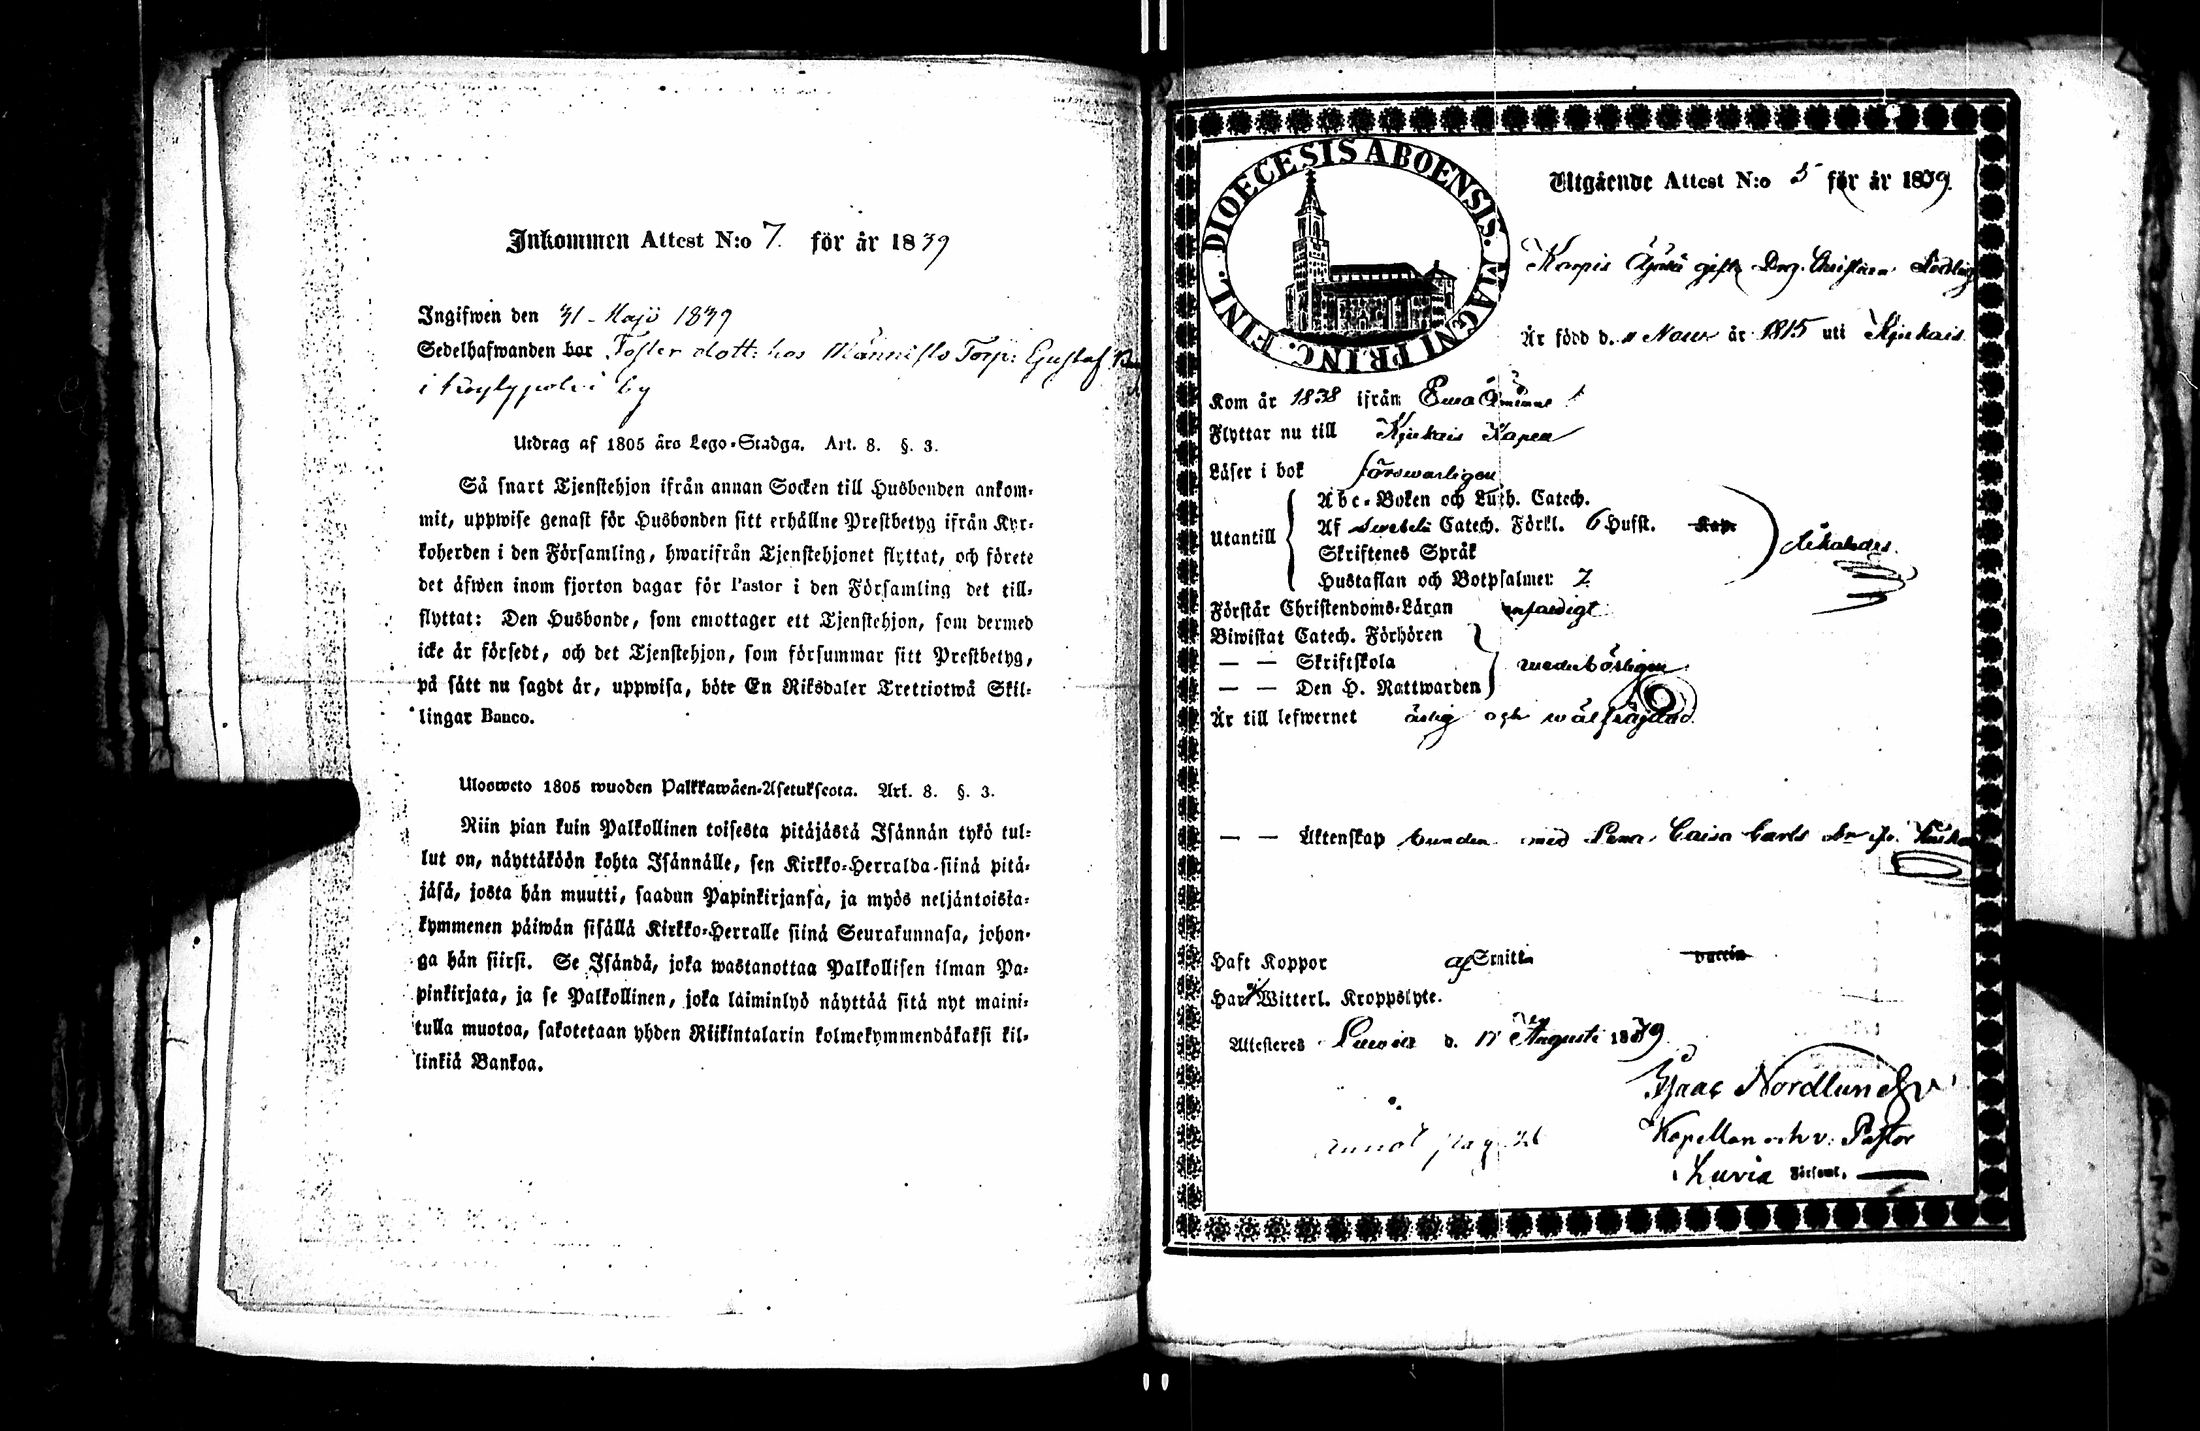 Inkommen Attest N:o 7. för år 1839
Ingifwen den 31 Maji 1839
Sedelhafwanden bor Foster dott: hos Männisto Torp: Gustaf
i by
Utdrag af 1805 års Lego-Stadga. Art. 8. §. 3.
Så snart Tjenstehjon ifrån annan Socken till Husbonden ankom-
mit, uppwise genast för Husbonden sitt erhållne Prestbetyg ifrån Kyr-
koherden i den Församling, hwarifrån Tjenstehjonet flyttat, och förete
det äfwen inom fjorton dagar för Pastor i den Församling det till-
flyttat: Den Husbonde, som emottager ett Tjenstehjon, som dermed
icke är försedt, och det Tjenstehjon, som försummar sitt Prestbetyg,
på sätt nu sagdt är, uppwisa, böte En Riksdaler Trettiotwå Skil-
lingar Banco.
Ulosweto 1805 wuoden Palkkawäen-Asetuksesta. Art. 8. §. 3.
Niin pian kuin Palkollinen toisesta pitäjästä Isännän tykö tul-
lut on, näyttäköön kohta Isännälle, sen Kirkko-Herralda siinä pitä-
jäsä, josta hän muutti, saadun Papinkirjansa, ja myös neljäntoista-
kymmenen päiwän sisällä Kirkko-Herralle siinä Seurakunnasa, johon-
ga hän siirsi. Se Isändä, joka wastanottaa Palkollisen ilman Pa-
pinkirjata, ja se Palkollinen, joka laiminlyö näyttää sitä nyt maini-
tulla muotoa, sakotetaan yhden Riikintalarin kolmekymmendäkaksi kil-
linkiä Bankoa.
DIOECESIS ABOENSIS. MAGNI PRINC. FINL.
Utgående Attest N:o 5 för år 1839.
gifte Drg. Christian
Är född d. Nov år 1815 uti Kjukais
Kom år 1838 ifrån Eura
Flyttar nu till Kjukais Kapell
Läser i bok förswarligen
Utantill
Abc-Boken och Luth. Catech.
Af Swebelii Catech. Förkl. 6 Hufst. Kap.
Skriftenes Språk
Hustaflan och Botpsalmer 7.
Förstår Christendoms-Läran enfaldigt
Biwistat Catech. Förhören
— — Skriftskola
— — Den H. Nattwarden
wederbörligen
Är till lefwernet ärlig och wälfräjdad.
— — Äktenskap bunden med Lena Caisa Carls dr
Haft Koppor af Smitta vaccin
Har ej Witterl. Kroppslyte.
Attesteres Luvia d. 17 Augusti 1839.
Isaac Nordlund
Kapellan och v. Pastor
Luvia Församl.
annot pag